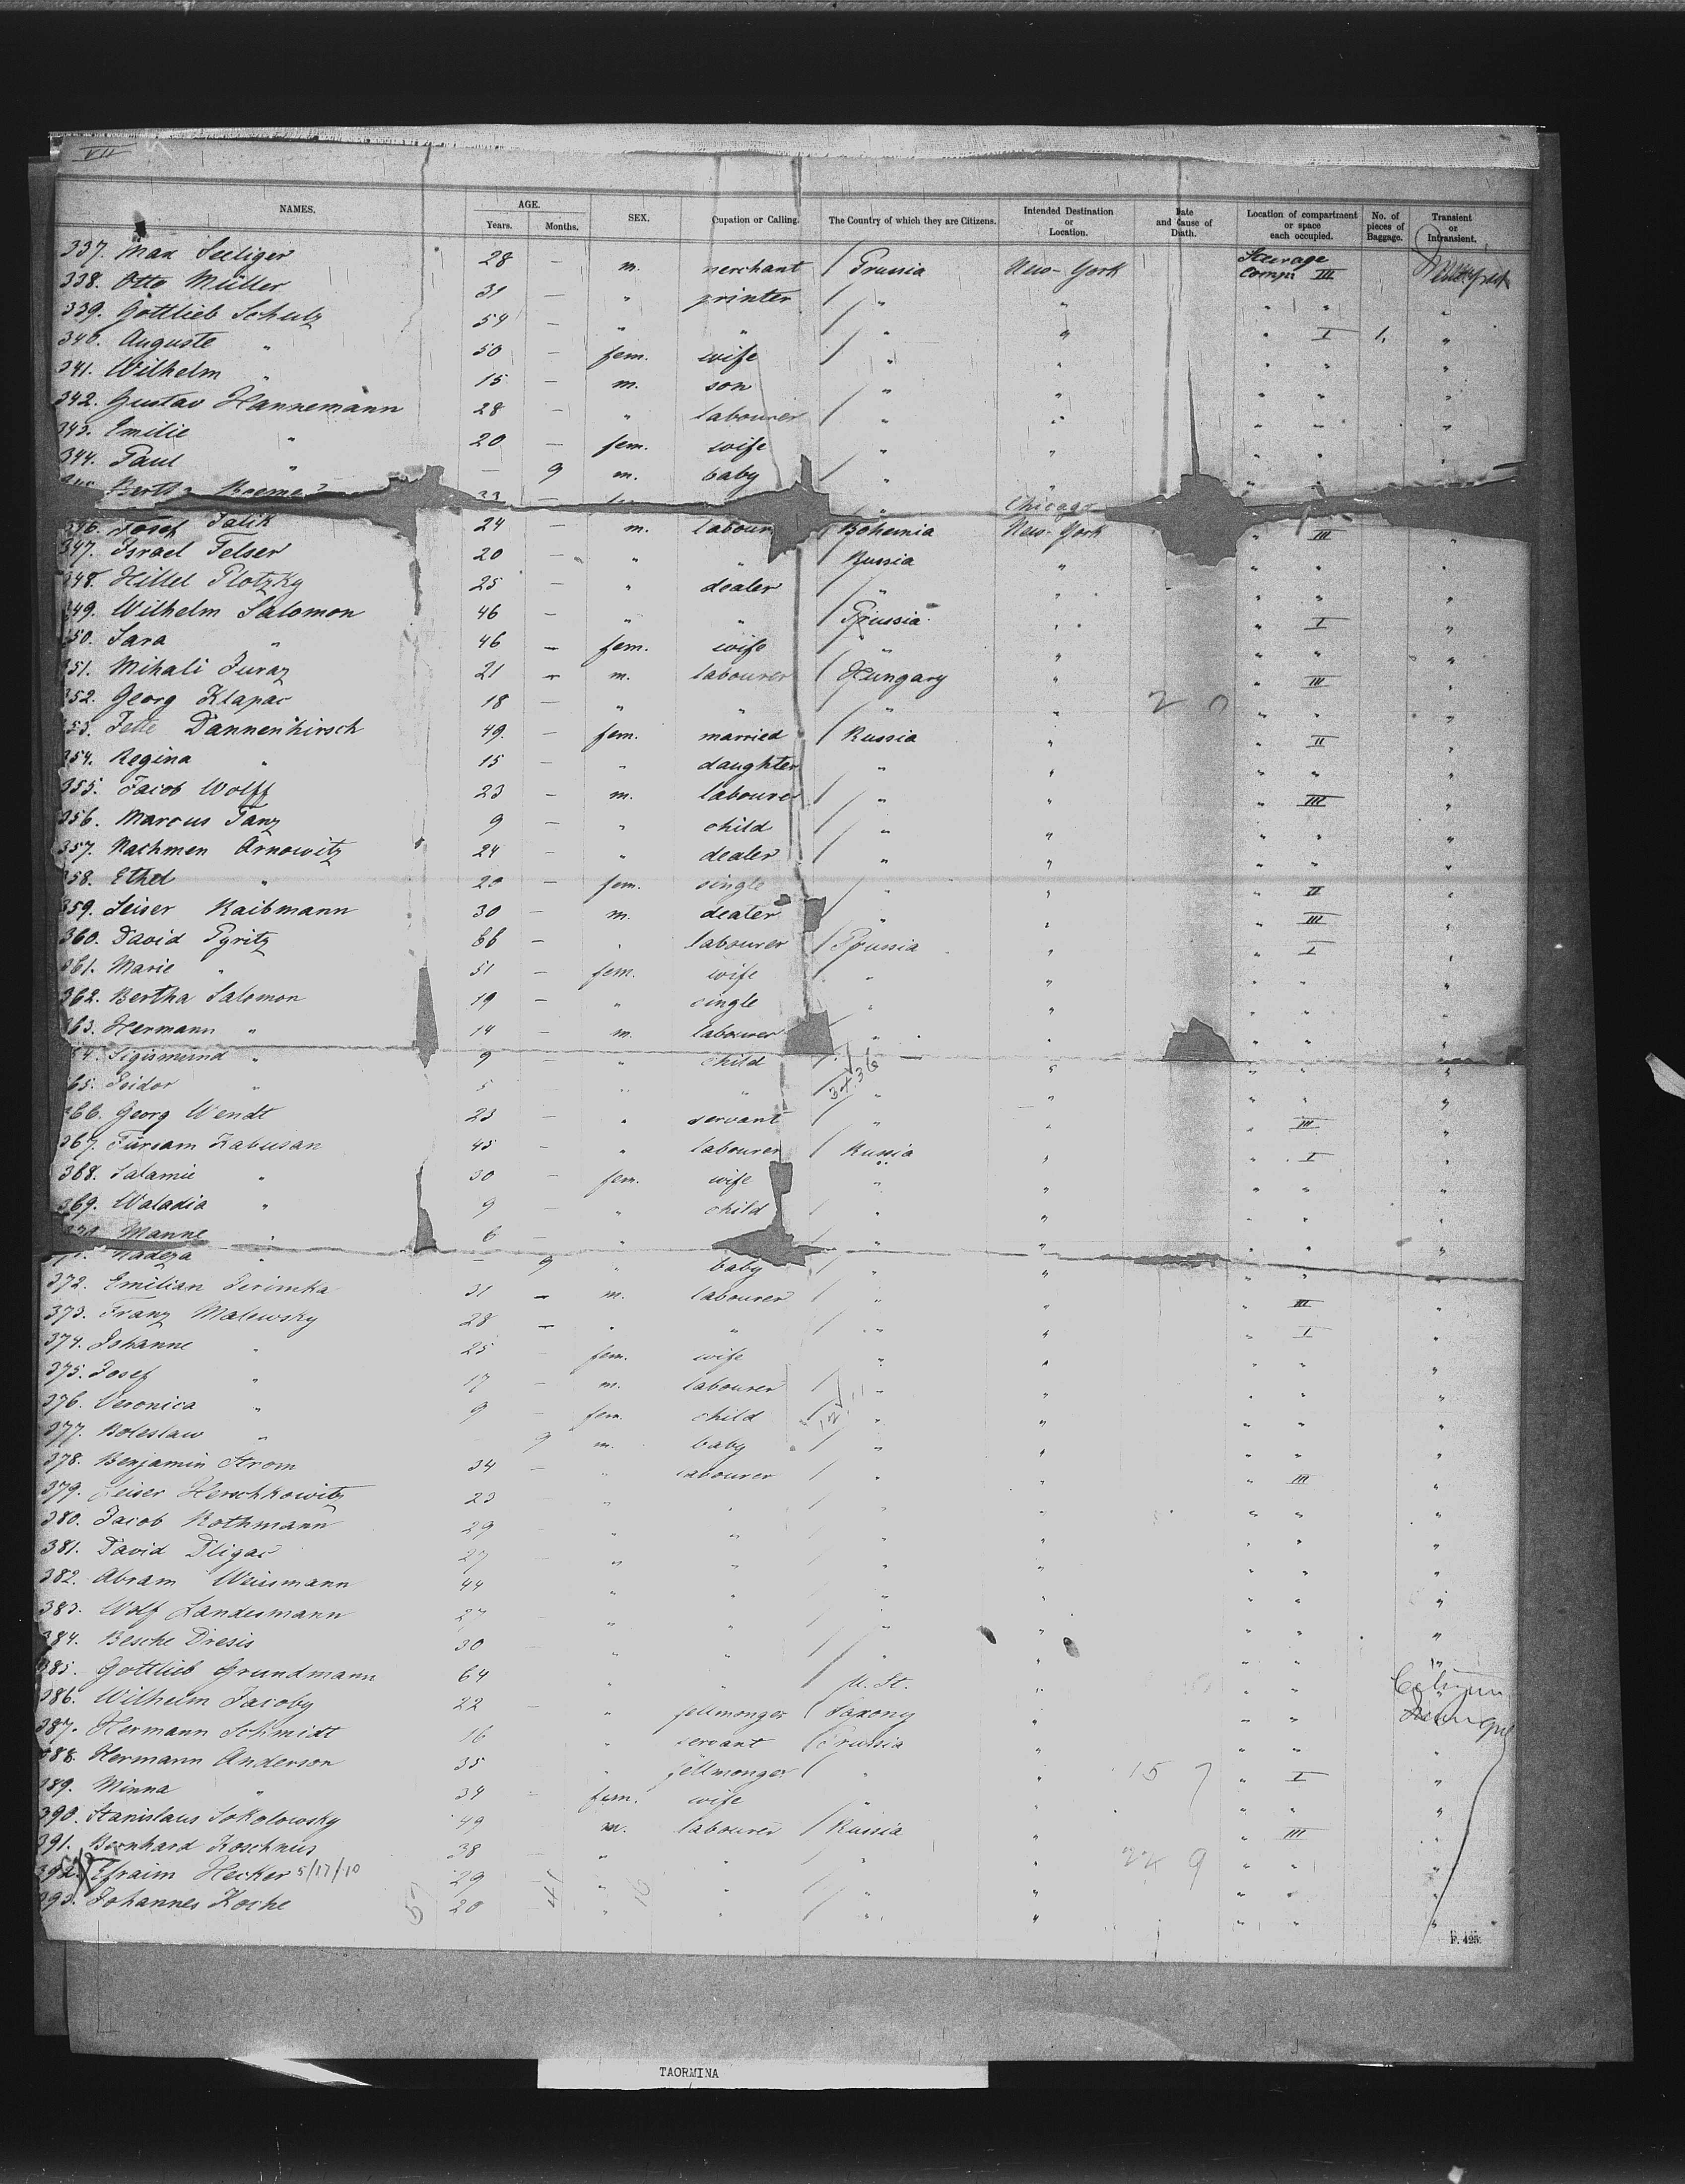 VII
NAMES. AGE. Years. Months. SEX. Cupation or Calling. The Country of which they are Citizens. Intended Destination or Location. Date and Cause of Death. Location of compartment or space each occupied. No. of pieces of Baggage. Transient or Intransient.
337. Max Seeliger 28 — m. merchant / Prussia New-York Steerage Comp. III
338. Otto Müller 31 — " printer / " " " " "
339. Gottlieb Schulz 54 — " " / " " " I 1. "
340. Auguste " 50 — fem. wife / " " " " "
341. Wilhelm " 15 — m. son " " " " "
342. Gustav Hannemann 28 — " labourer / " " " " "
343. Emilie " 20 — fem. wife " " " " "
344. Paul " — 9 m. baby / " " " "
Bertha 33 — " Chicago
346. Josef Talik 24 — m. labour / Bohemia New-York " III "
347. Israel Felser 20 — " " / Russia " " " "
348. Hillel Plotzky 25 — " dealer / " " " " "
349. Wilhelm Salomon 46 — " " / Prussia " " I "
350. Sara " 46 — fem. wife / " " " " "
351. Mihali Juraz 21 — m. labourer / Hungary " " III "
352. Georg Klapac 18 — " " / " " " " "
353. Jette Dannenhirsch 49 — fem. married / Russia " " II "
354. Regina " 15 — " daughter " " " " "
355. Jacob Wolff 23 — m. labourer / " " " III "
356. Marcus Tanz 9 — " child / " " " " "
357. Nachmen Arnowitz 24 — " dealer / " " " " "
358. Ethel " 20 — fem. single / " " " II "
359. Leiser Raibmann 30 — m. dealer " " " III "
360. David Pyritz — " labourer / Prussia " " I "
361. Marie " 51 — fem. wife / " " " " "
362. Bertha Salomon 19 — " single / " " " " "
363. Hermann " 14 — m. labourer " " " " "
64. Sigismund " 9 — " child / " " " " "
65. Isidor " 5 " " / " " " " "
366. Georg Wendt 23 — " servant / " " " III "
367. Zabusan 45 — " labourer / Russia " " I "
368. Salamie " 30 — fem. wife " " " " "
369. Waladia " 9 — " child / " " " " "
370. Manne " 6 — " " " " " "
Nadeza " — 9 " baby / " " " " "
372. Emilian Jerimka 31 — m. labourer / " " " III "
373. Franz Malewsky 28 — " " / " " " I "
374. Johanne " 25 — fem. wife " " " " "
375. Josef " 17 — m. labourer / " " " " "
376. Veronica " 9 — fem. child / " " " " "
377. Boleslaw " 9 m. baby / " " " " "
378. Benjamin Strom 34 — " labourer / " " " III "
379. Leiser Herschkowitz 23 " " / " " " " "
380. Jacob Rothmann 29 " " " " " " "
381. David Dligac 27 — " " / " " " " "
382. Abram Weissmann 44 " " " " " " "
383. Wolf Landesmann 27 — " " / " " " " "
384. Besche Dresis 30 — " " / " " " " "
385. Gottlieb Grundmann 64 " " / U. St. " " " "
386. Wilhelm Jacoby 22 — " fellmonger / Saxony " " "
387. Hermann Schmidt 16 " servant / Prussia " " " "
388. Hermann Anderson 35 " fellmonger / " " " I "
389. Minna " 34 — fem. wife " " " " "
390. Stanislaus Sokolowsky 49 m. labourer / Russia " " III "
391. Bernhard Koschnus 38 " " / " " " " "
392. Efraim Hecker 5/17/10 29 " " / " " " " "
393. Johannes Koche 20 " " / " " " " "
F. 425.
TAORMINA